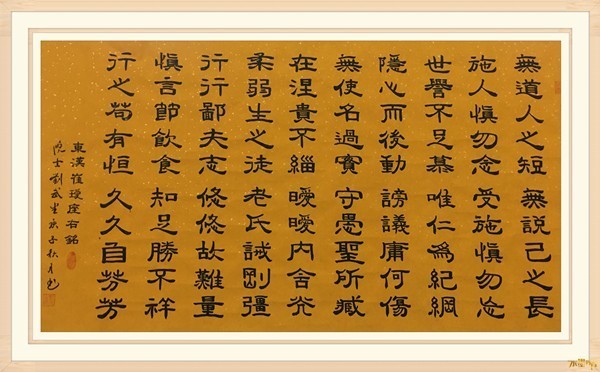 無道人之短無說己之長
施人慎勿念受施慎勿忘
世譽不足慕唯仁為紀綱
隱心而後動謗議庸何傷
無使名過實守愚聖所臧
在涅貴不緇曖曖內含光
柔弱生之徒老氏誡剛彊
行行鄙夫志悠悠故難量
慎言節飲食知足勝不祥
行之苟有恒久久自芬芳
東漢崔瑗座右銘
院士劉武生庚子秋月